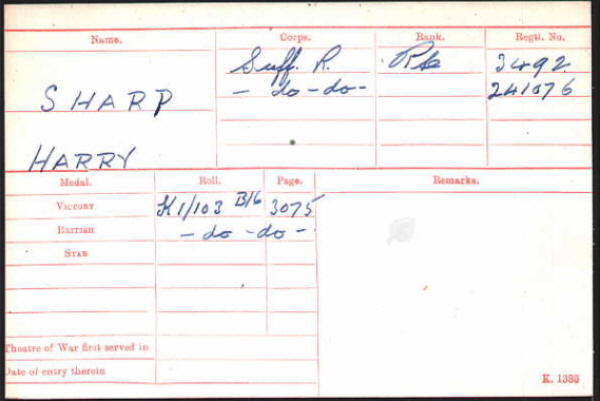 Name. Corps. Rank. Regtl. No.
Suff. R. Pte 3492
SHARP - do - do - 241076
HARRY
Medal. Roll. Page. Remarks.
Victory K1/103 B16 3075
British - do - do -
Star
Theatre of War first served in
Date of entry therein
K. 1380